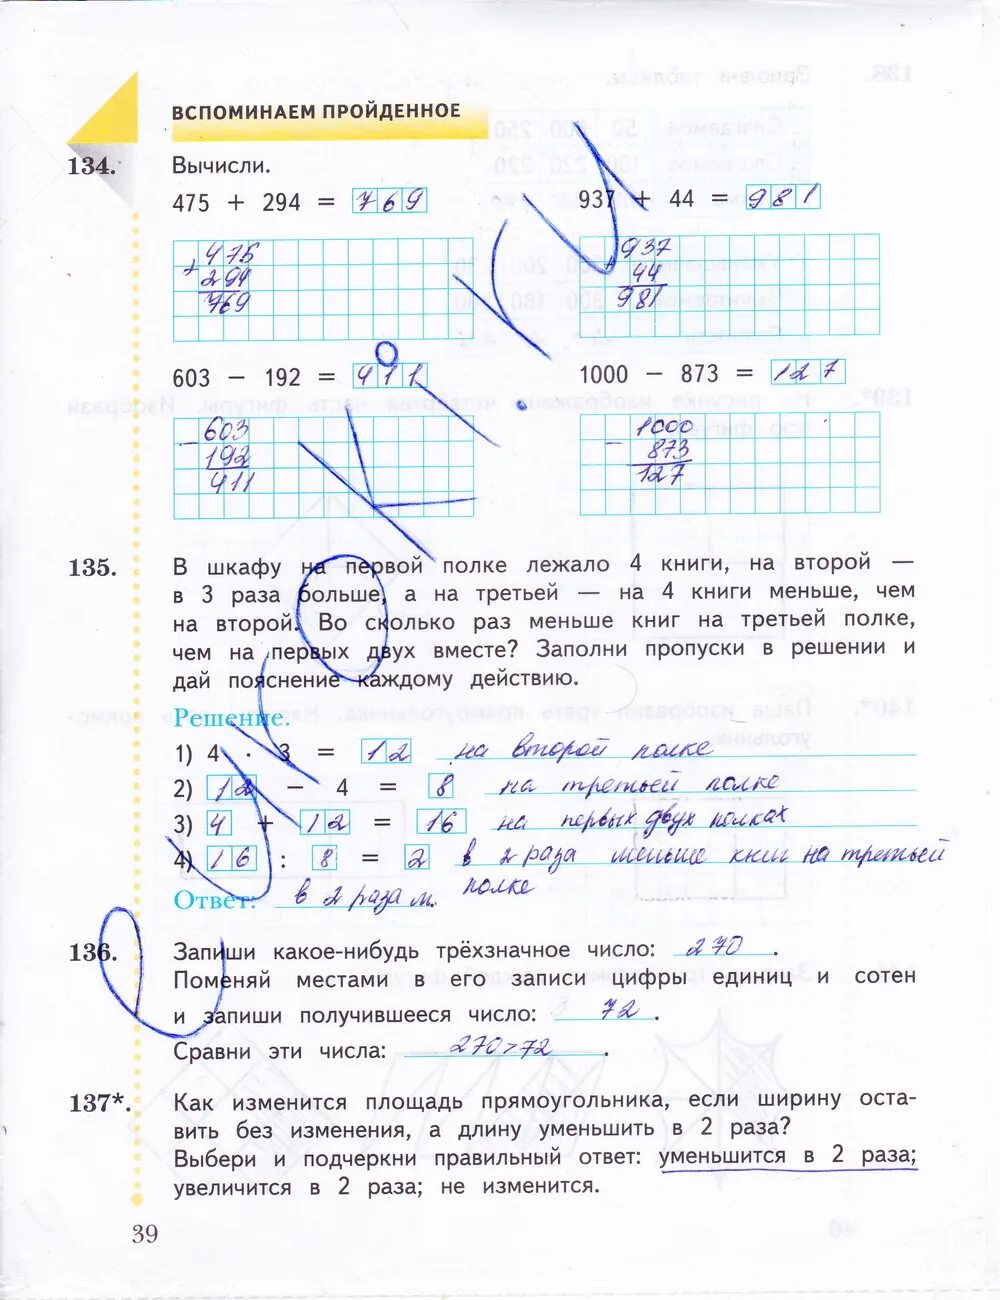 ВСПОМИНАЕМ ПРОЙДЕННОЕ
134. Вычисли.
475 + 294 = 769
937 + 44 = 981
+475
294
769
+937
44
981
603 − 192 = 411
1000 − 873 = 127
−603
192
411
−1000
873
127
135. В шкафу на первой полке лежало 4 книги, на второй —
в 3 раза больше, а на третьей — на 4 книги меньше, чем
на второй. Во сколько раз меньше книг на третьей полке,
чем на первых двух вместе? Заполни пропуски в решении и
дай пояснение каждому действию.
Решение.
1) 4 · 3 = 12 на второй полке
2) 12 − 4 = 8 на третьей полке
3) 4 + 12 = 16 на первых двух полках
4) 16 : 8 = 2 в 2 раза меньше книг на третьей
полке
Ответ: в 2 раза м.
136. Запиши какое-нибудь трёхзначное число: 270.
Поменяй местами в его записи цифры единиц и сотен
и запиши получившееся число: 72.
Сравни эти числа: 270>72.
137*. Как изменится площадь прямоугольника, если ширину оста-
вить без изменения, а длину уменьшить в 2 раза?
Выбери и подчеркни правильный ответ: уменьшится в 2 раза;
увеличится в 2 раза; не изменится.
39